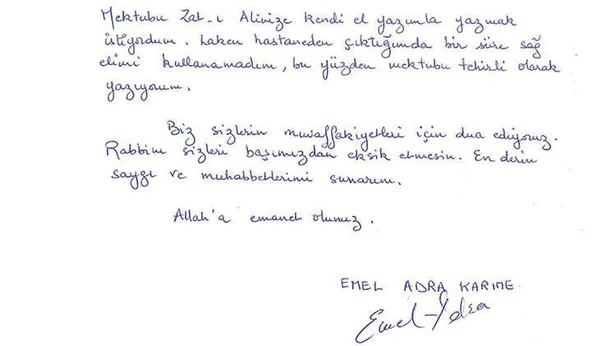 Mektubu Zat-ı Alinize kendi el yazımla yazmak
istiyordum. Laken hastaneden çıktığımda bir süre sağ
elimi kullanamadım, bu yüzden mektubu tehirli olarak
yazıyorum.
Biz sizlerin muvaffakiyetleri için dua ediyoruz.
Rabbim sizleri başımızdan eksik etmesin. En derin
saygı ve muhabbetlerimi sunarım.
Allah'a emanet olunuz.
EMEL ADRA KARİME
Emel Adra